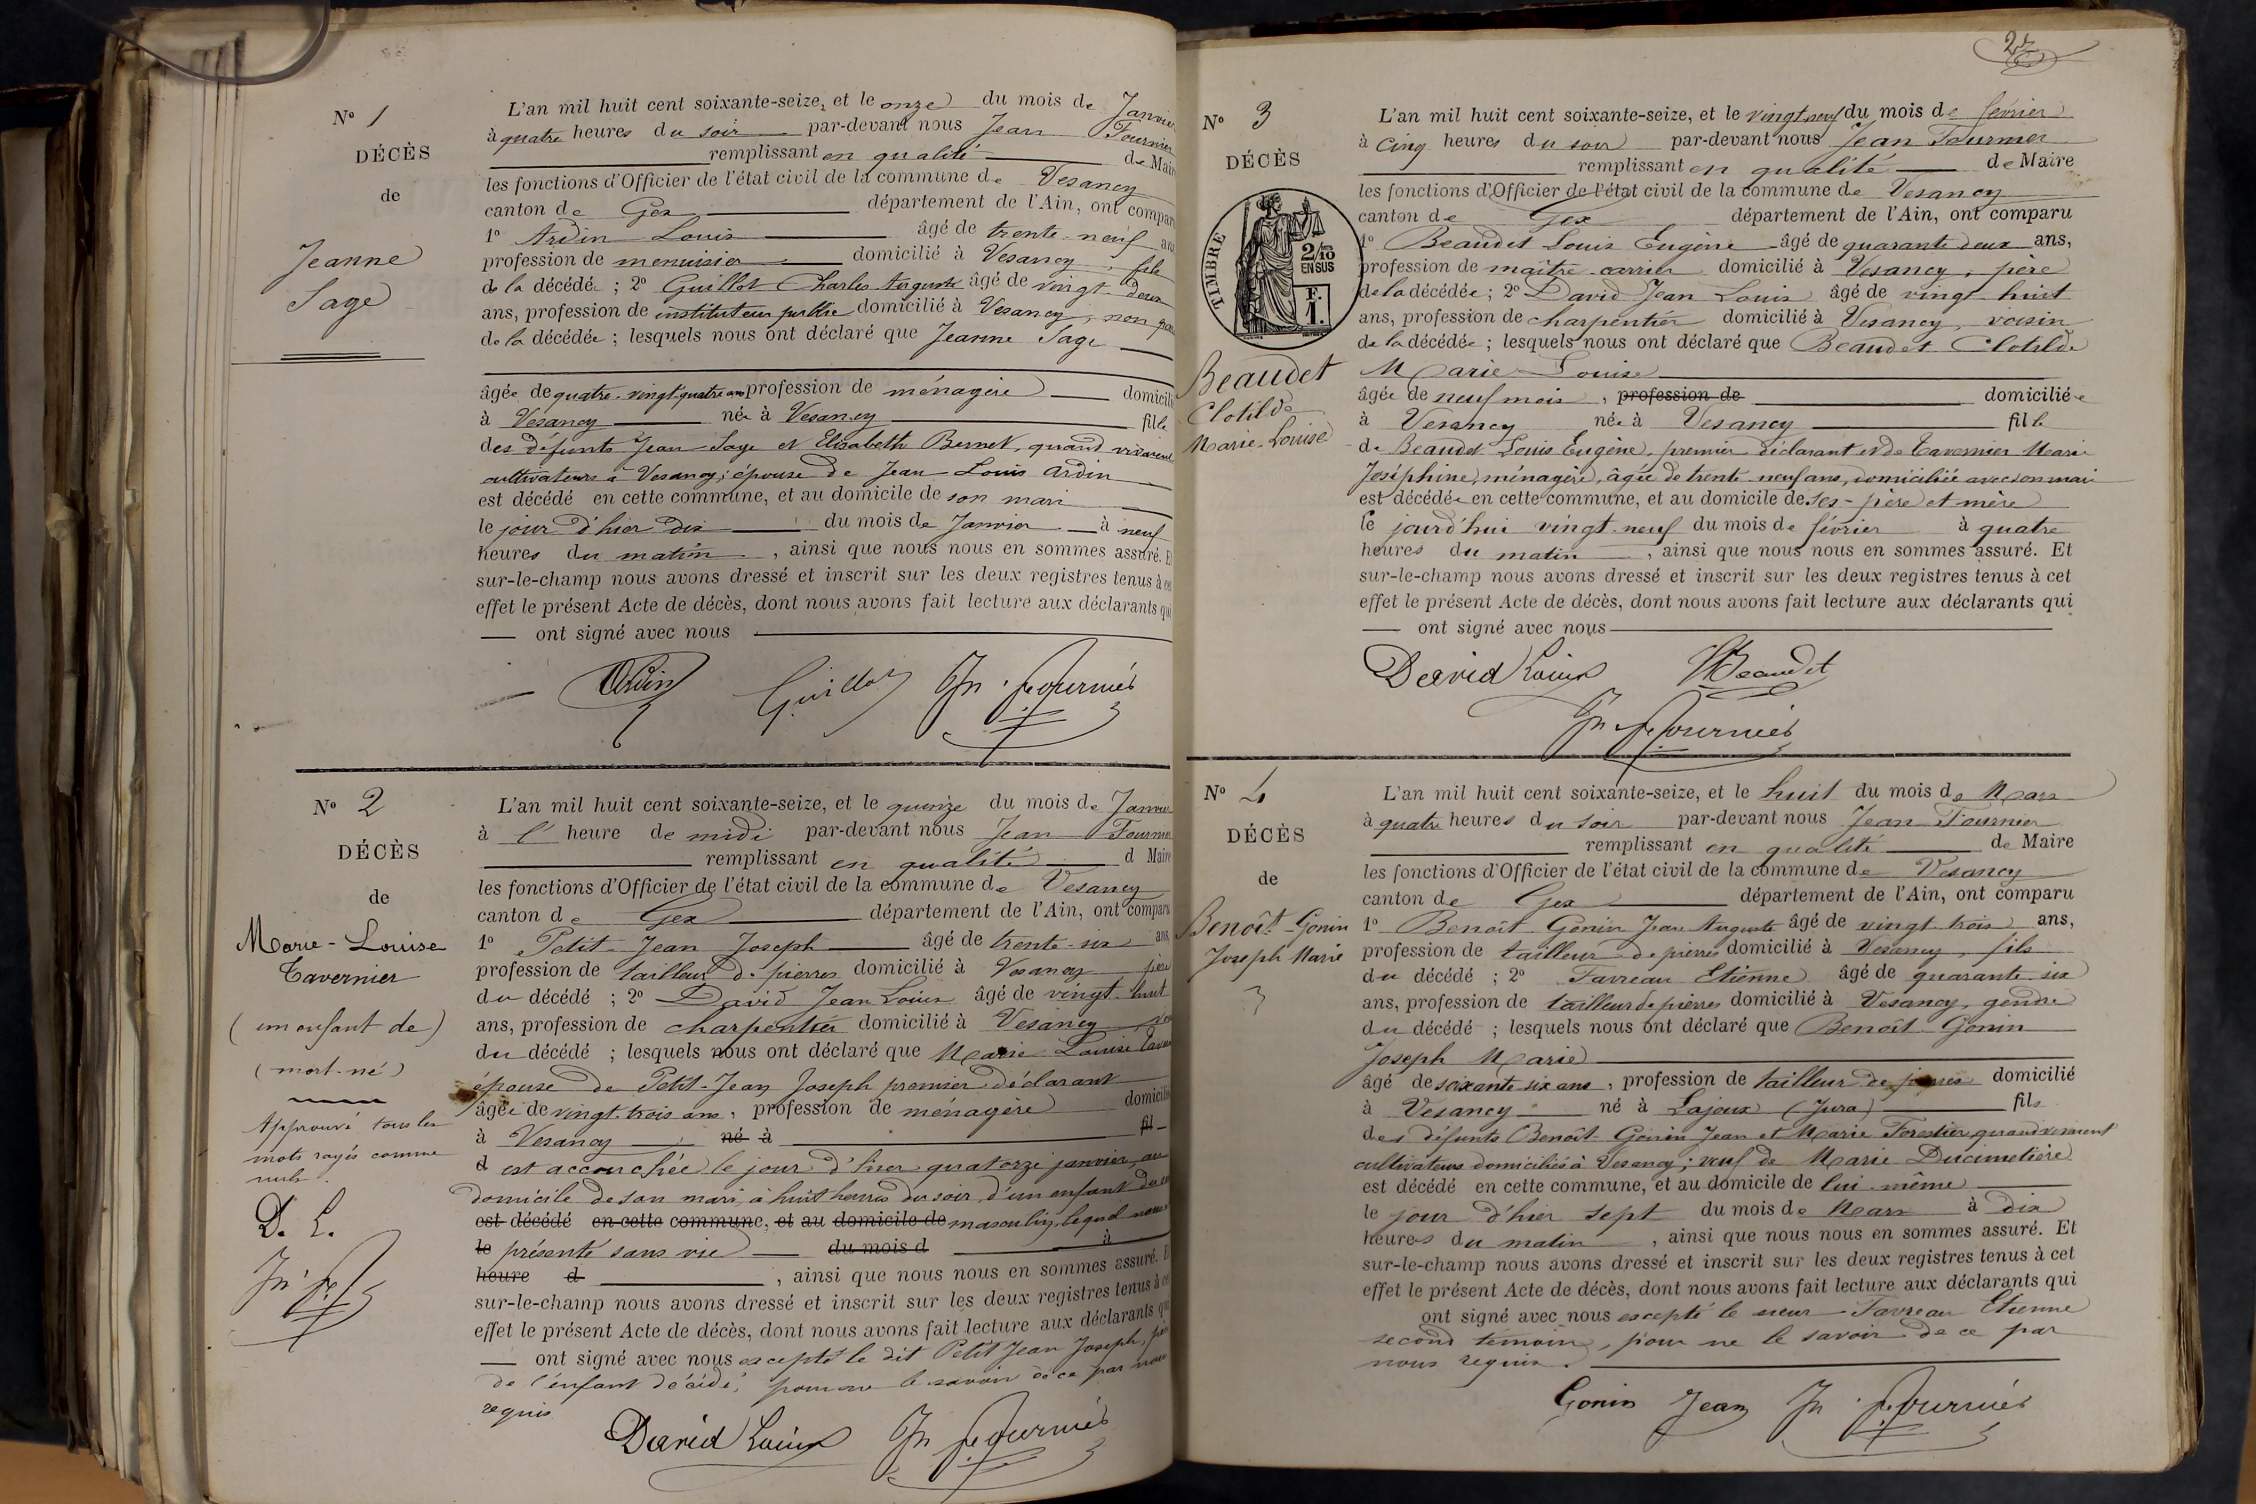 N° 1
DÉCÈS
de
Jeanne
Sage
L'an mil huit cent soixante-seize, et le onze du mois de Janvier
à quatre heures du soir par-devant nous Jean Fournier
remplissant en qualité de Maire
les fonctions d'Officier de l'état civil de la commune de Vesancy
canton de Gex département de l'Ain, ont comparu
1° Ardin Louis âgé de trente-neuf ans
profession de menuisier domicilié à Vesancy, fils
de la décédée ; 2° Guillot Charles Auguste âgé de vingt-deux
ans, profession de instituteur public domicilié à Vesancy, non
de la décédée ; lesquels nous ont déclaré que Jeanne Sage
âgée de quatre-vingt-quatre ans profession de ménagère domicili
à Vesancy née à Vesancy fille
des défunts Jean Sage et Elisabeth Bernet, quand vivaient
cultivateurs à Vesancy ; épouse de Jean Louis Ardin
est décédé en cette commune, et au domicile de son mari
le jour d'hier dix du mois de Janvier à neuf
heures du matin, ainsi que nous nous en sommes assuré. E
sur-le-champ nous avons dressé et inscrit sur les deux registres tenus à cet
effet le présent Acte de décès, dont nous avons fait lecture aux déclarants qui
ont signé avec nous
Ardin Guillot Jn Fournier
N° 2
DÉCÈS
de
Marie-Louise
Tavernier
(un enfant de)
(mort-né)
Approuvé tous les
mots rayés comme
nuls.
D. L.
Jn F
L'an mil huit cent soixante-seize, et le quinze du mois de Janvier
à l' heure de midi par-devant nous Jean Fournier
remplissant en qualité d Maire
les fonctions d'Officier de l'état civil de la commune de Vesancy
canton de Gex département de l'Ain, ont comparu
1° Petit-Jean Joseph âgé de trente-six ans
profession de tailleur de pierres domicilié à Vesancy père
du décédé ; 2° David Jean Louis âgé de vingt-huit
ans, profession de charpentier domicilié à Vesancy
du décédé ; lesquels nous ont déclaré que Marie Louise Tavernier
épouse de Petit-Jean Joseph premier déclarant
âgée de vingt-trois ans, profession de ménagère domicilié
à Vesancy né à fil
d est accouchée le jour d'hier quatorze janvier, au
domicile de son mari, à huit heures du soir, d'un enfant du sexe
est décédé en cette commune, et au domicile de masculin, lequel nous
le présenté sans vie du mois d à
heure d , ainsi que nous nous en sommes assuré. E
sur-le-champ nous avons dressé et inscrit sur les deux registres tenus à cet
effet le présent Acte de décès, dont nous avons fait lecture aux déclarants qui
ont signé avec nous excepté le dit Petit Jean Joseph, père
de l'enfant décédé, pour ne le savoir de ce par nous
requis
David Louis Jn Fournier
2e
N° 3
DÉCÈS
TIMBRE
2/10
EN SUS
F.
1.
Beaudet
Clotilde
Marie-Louise
L'an mil huit cent soixante-seize, et le vingt-neuf du mois de février
à cinq heures du soir par-devant nous Jean Fournier
remplissant en qualité de Maire
les fonctions d'Officier de l'état civil de la commune de Vesancy
canton de Gex département de l'Ain, ont comparu
1° Beaudet Louis Eugène âgé de quarante deux ans,
profession de maître-carrier domicilié à Vesancy, père
de la décédée ; 2° David Jean Louis âgé de vingt-huit
ans, profession de charpentier domicilié à Vesancy, voisin
de la décédée ; lesquels nous ont déclaré que Beaudet Clotilde
Marie Louise
âgée de neuf mois, profession de domiciliée
à Vesancy née à Vesancy fille
de Beaudet Louis Eugène, premier déclarant et de Tavernier Marie
Joséphine, ménagère, âgée de trente-neuf ans, domiciliée avec son mari
est décédée en cette commune, et au domicile de ses père et mère
le jourd'hui vingt-neuf du mois de février à quatre
heures du matin, ainsi que nous nous en sommes assuré. Et
sur-le-champ nous avons dressé et inscrit sur les deux registres tenus à cet
effet le présent Acte de décès, dont nous avons fait lecture aux déclarants qui
ont signé avec nous
David Louis Beaudet
Jn Fournier
N° 4
DÉCÈS
de
Benoît-Gonin
Joseph Marie
L'an mil huit cent soixante-seize, et le huit du mois de Mars
à quatre heures du soir par-devant nous Jean Fournier
remplissant en qualité de Maire
les fonctions d'Officier de l'état civil de la commune de Vesancy
canton de Gex département de l'Ain, ont comparu
1° Benoît Gonin Jean Auguste âgé de vingt-trois ans,
profession de tailleur de pierres domicilié à Vesancy, fils
du décédé ; 2° Favreau Etienne âgé de quarante-six
ans, profession de tailleur de pierres domicilié à Vesancy, gendre
du décédé ; lesquels nous ont déclaré que Benoît-Gonin
Joseph Marie
âgé de soixante six ans, profession de tailleur de pierres domicilié
à Vesancy né à Lajoux (Jura) fils
des défunts Benoît-Gonin Jean et Marie Forestier, quand vivaient
cultivateurs domiciliés à Vesancy ; veuf de Marie Ducimetière
est décédé en cette commune, et au domicile de lui-même
le jour d'hier sept du mois de Mars à dix
heures du matin, ainsi que nous nous en sommes assuré. Et
sur-le-champ nous avons dressé et inscrit sur les deux registres tenus à cet
effet le présent Acte de décès, dont nous avons fait lecture aux déclarants qui
ont signé avec nous excepté le sieur Favreau Etienne
second témoin, pour ne le savoir de ce par
nous requis.
Gonin Jean Jn Fournier